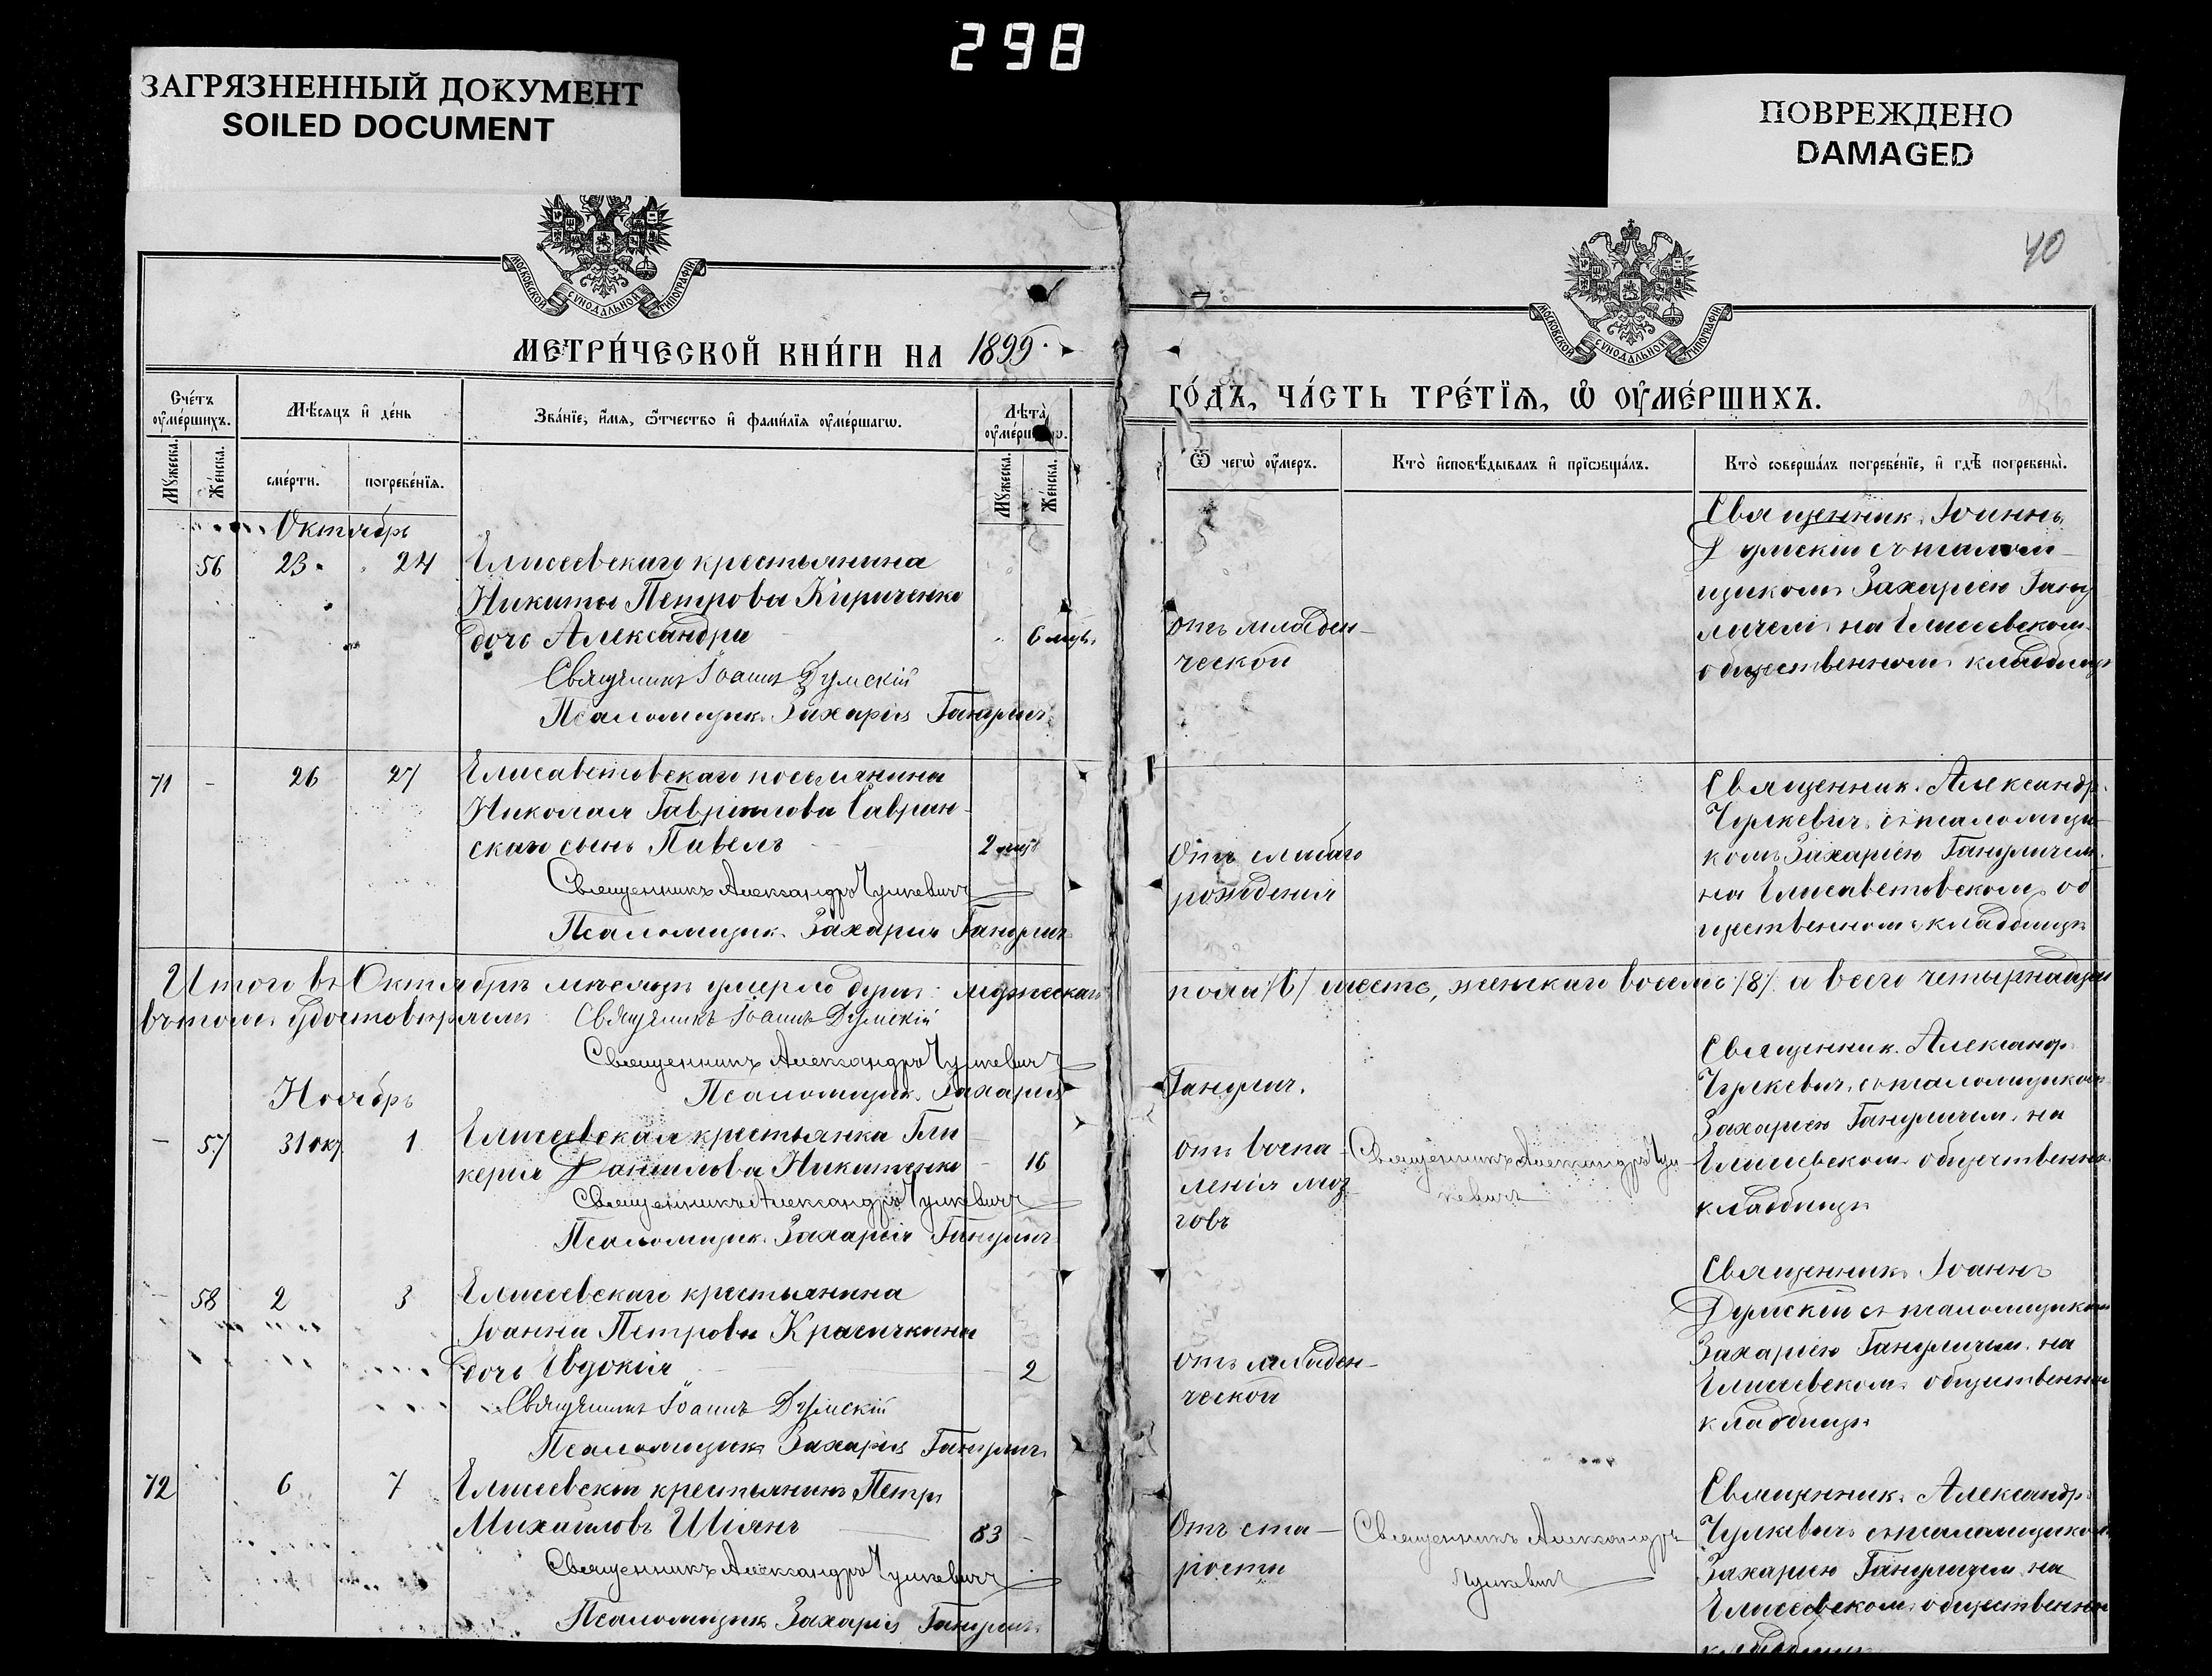 298
ЗАГРЯЗНЕННЫЙ ДОКУМЕНТ
SOILED DOCUMENT
ПОВРЕЖДЕНО
DAMAGED
МОСКОВСКОЙ СУНОДАЛЬНОЙ ТИПОГРАФІИ
МОСКОВСКОЙ СУНОДАЛЬНОЙ ТИПОГРАФІИ
40
МЕТРИ́ЧЕСКОЙ КНИ́ГИ НА 1899
ГО́ДЪ, ЧА́СТЬ ТРЕ́ТЇѦ, Ѡ҆ ОУ҆МЕ́РШИХЪ.
Сче́тъ оу҆ме́ршихъ.
Мѣ́сяцъ и҆ де́нь
Зва́нїе, и҆́мѧ, ѻ҆́тчество и҆ фами́лїѧ оу҆ме́ршагѡ.
Лѣта̀ оу҆ме́ршагѡ.
Му́жеска.
Же́нска.
сме́рти.
погребе́нїѧ.
Му́жеска.
Же́нска.
Ѿ чегѡ̀ оу҆́меръ.
Кто̀ и҆сповѣ́дывалъ и҆ прїѡбща́лъ.
Кто̀ соверша́лъ погребе́нїе, и҆ гдѣ̀ погребены̀.
Октябрь
56 23 24 Елисеевскаго крестьянина
Никиты Петрова Кириченко
дочь Александра 6 мцъ.
Священникъ Іоаннъ Думскій
Псаломщикъ Захарія Ганулич
отъ младен-
ческой
Священникъ Іоаннъ
Думскій съ псалом-
щикомъ Захаріею Гану
личемъ на Елисеевскомъ
общественномъ кладбищѣ
71 - 26 27 Елисаветовскаго поселянина
Николая Гавриилова Саврин-
скаго сынъ Павелъ 2 мцъ
Священникъ Александръ Чулкевичъ
Псаломщикъ Захарія Ганулич
Отъ слабаго
рожденія
Священникъ Александръ
Чулкевичъ съ псаломщи
комъ Захаріею Гануличемъ
на Елисаветовскомъ об
щественномъ кладбищѣ
Итого въ Октябрѣ мѣсяцѣ умерло душъ: мужескаго
пола /6/ шесть, женскаго восемь /8/ а всего четырнадцать
въ томъ удостовѣряемъ Священникъ Іоаннъ Думскій
Священникъ Александръ Чулкевичъ
Псаломщикъ Захарія
Ганулич.
Ноябрь
- 57 31 окт. 1 Елисеевская крестьянка Гли
керия Данилова Никитенко - 16
Священникъ Александръ Чулкевичъ
Псаломщикъ Захарія Ганулич
отъ воспа
ленія моз
говъ
Священникъ Александръ Чул
кевичъ
Священникъ Александръ
Чулкевичъ съ псаломщикомъ
Захаріею Гануличемъ на
Елисеевскомъ общественно
кладбищѣ
- 58 2 3 Елисеевскаго крестьянина
Іоанна Петрова Красичкина
дочь Евдокія - 2
Священникъ Іоаннъ Думскій
Псаломщикъ Захарія Ганулич
Отъ младен-
ческой
Священникъ Іоаннъ
Думскій съ псаломщикомъ
Захаріею Гануличемъ на
Елисеевскомъ общественном
кладбищѣ
72 6 7 Елисеевскій крестьянинъ Петръ
Михаиловъ Шіянъ 83 -
Священникъ Александръ Чулкевичъ
Псаломщикъ Захарія Ганулич
Отъ ста-
рости
Священникъ Александръ
Чулкевичъ
Священникъ Александръ
Чулкевичъ съ псаломщикомъ
Захаріею Гануличемъ на
Елисеевскомъ общественном
кладбищѣ